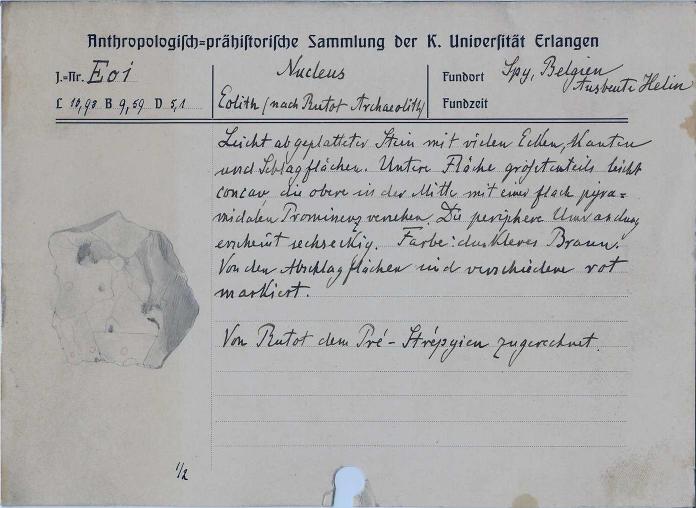 Anthropologisch=prähistorische Sammlung der K. Universität Erlangen
J.=Nr. Eo1
Nucleus
Fundort Spy, Belgien
Ausbeute Helin
L 10,98 B 9,59 D 5,1
Eolith (nach Rutot Archaeolith)
Fundzeit
Leicht abgeplatteter Stein mit vielen Ecken, Kanten
und Schlagflächen. Untere Fläche größtenteils leicht
concav, die obere in der Mitte mit einer flach pyra=
midalen Prominenz versehen. Die periphere Umrandung
erscheint sechseckig. Farbe: dunkleres Braun.
Von den Abschlagflächen sind verschiedene rot
markiert.
Von Rutot dem Pré-Strépyien zugerechnet.
1/2